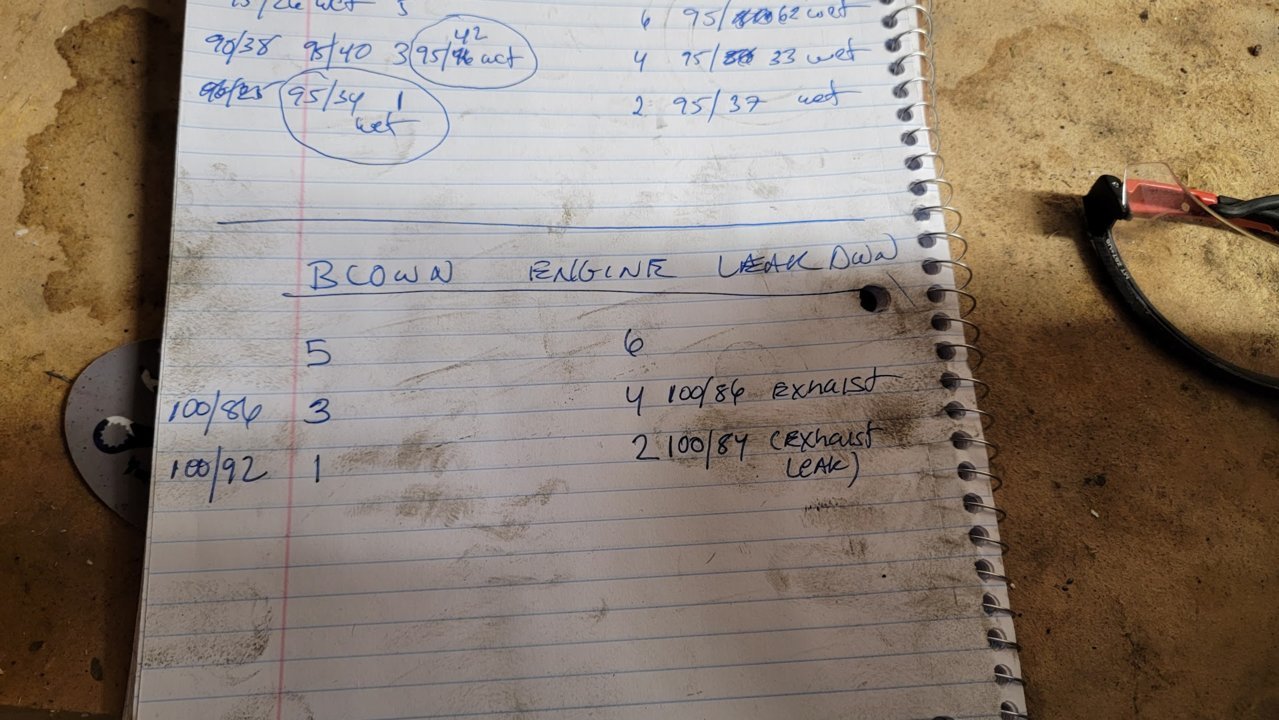 95/26 wet 5 6 95/62 wet
90/38 95/40 3 95/42 wet 4 95/33 wet
95/34 1 2 95/37 wet
wet
BLOWN ENGINE LEAK DWN
5 6
100/86 3 4 100/86 Exhaust
100/92 1 2 100/84 (Exhaust
LEAK)